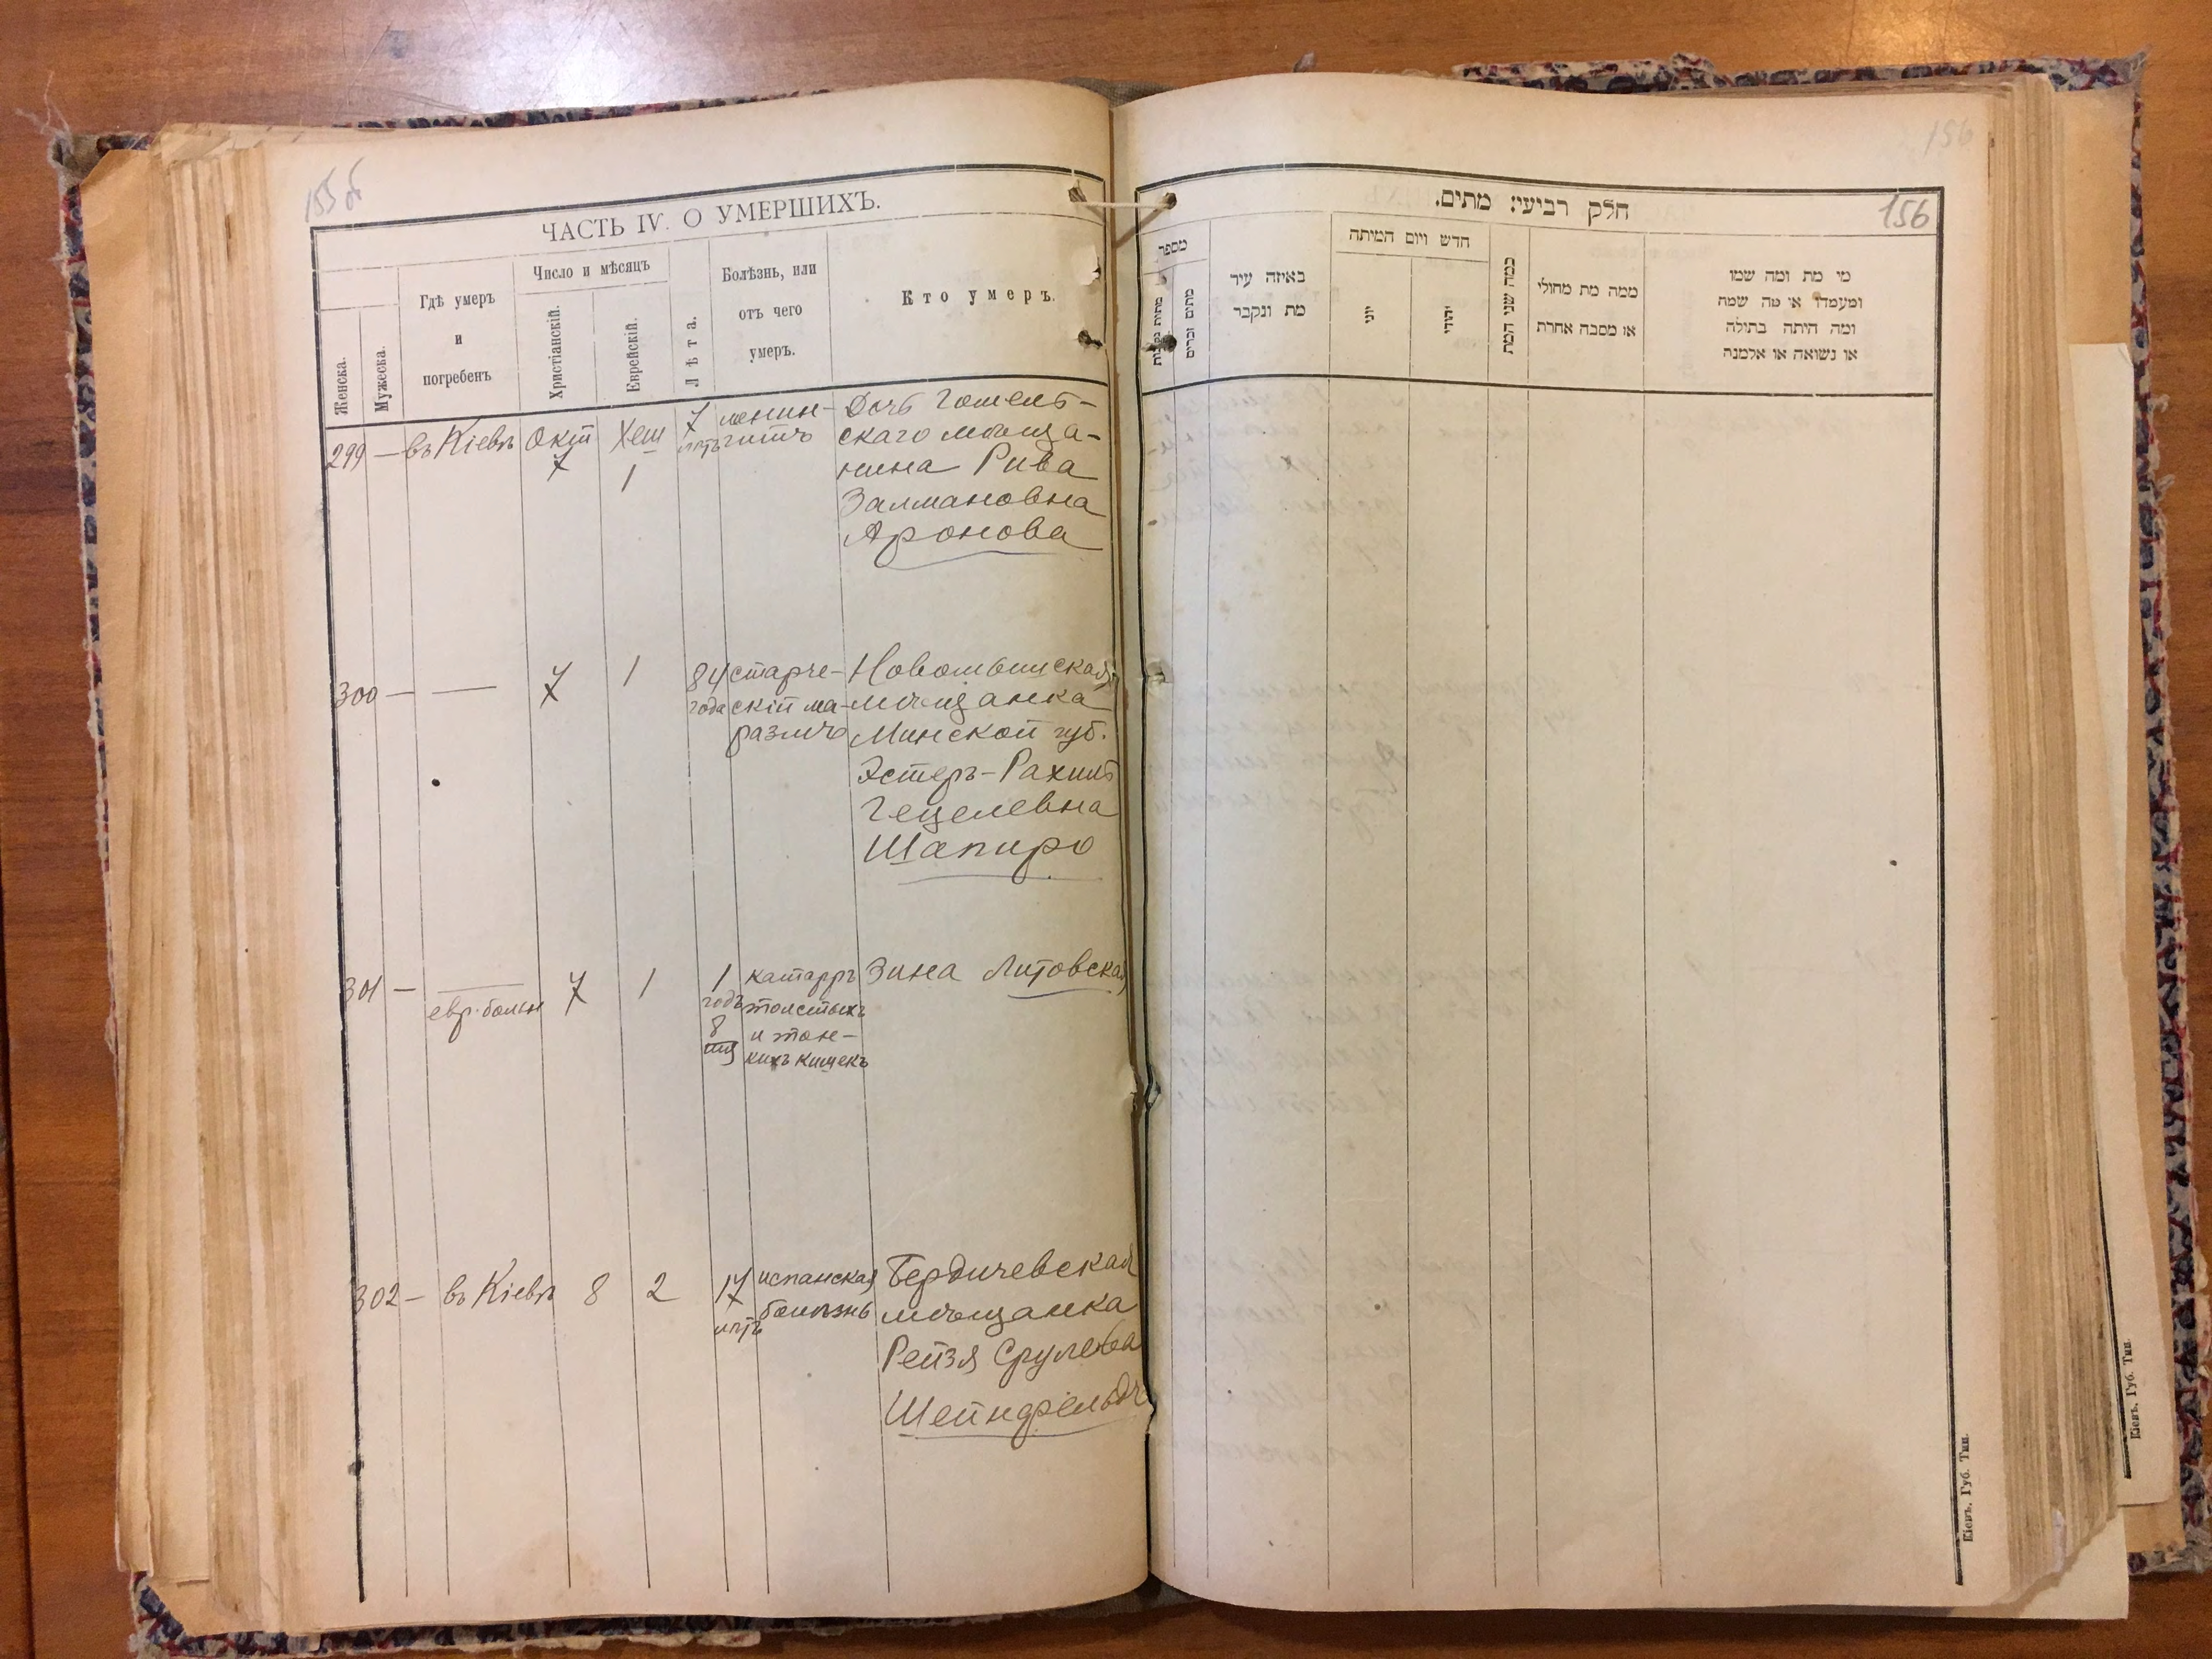 155 об
ЧАСТЬ IV. О УМЕРШИХЪ.
Женска.
Мужеска.
Гдѣ умеръ
и
погребенъ
Число и мѣсяцъ
Христіанскій.
Еврейскій.
Лѣта.
Болѣзнь, или
отъ чего
умеръ.
Кто умеръ.
299 — въ Кіевѣ Окт 7 Хеш 1 7 лѣтъ
менин-
гитъ
Дочь Гомель-
скаго мѣща-
нина Рива
Залмановна
Аронова
300 — — 7 1 84 года
старче-
скій ма-
размъ
Новомышская
мѣщанка
Минской губ.
Эстеръ-Рахиль
Гецелевна
Шапиро
301 — —
евр. больн
7 1 1
годъ
8
катарръ
толстыхъ
и тон-
кихъ кишекъ
Зина Литовская
302 — въ Кіевѣ 8 2 17
лѣтъ
испанская
болѣзнь
Бердичевская
мѣщанка
Рейзя Срулева
Шейнфельдъ
156
חלק רביעי: מתים.
156
מספר
מתות נקבות
מתים זכרים
באיזה עיר
מת ונקבר
חדש ויום המיתה
יוני
יהודי
כמה שני המת
ממה מת מחולי
או מסבה אחרת
מי מת ומה שמו
ומעמדו או מה שמה
ומה היתה בתולה
או נשואה או אלמנה
Кіевъ, Губ. Тип.
Кіевъ, Губ. Тип.